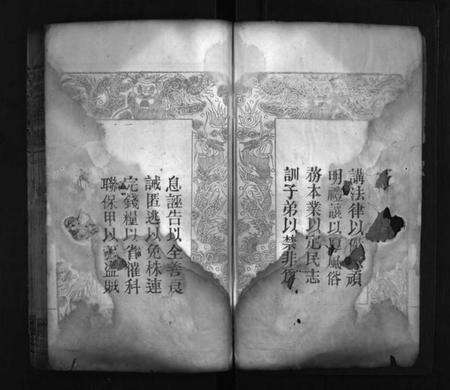 講法律以儆愚頑
明禮讓以厚風俗
務本業以定民志
訓子弟以禁非為
息誣告以全善良
誡匿逃以免株連
完錢糧以省催科
聯保甲以弭盜賊